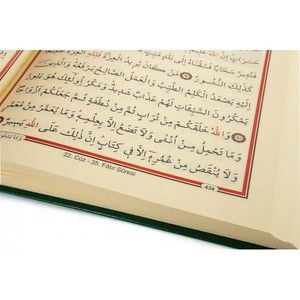 فَتُثِيرُ سَحَابًا فَسُقْنَاهُ اِلٰى
كَذٰلِكَ النُّشُورُ مَنْ كَانَ يُرِيدُ الْعِزَّةَ فَلِلّٰهِ
اِلَيْهِ يَصْعَدُ الْكَلِمُ الطَّيِّبُ وَالْعَمَلُ الصَّالِحُ يَرْفَعُهُ وَالَّذِينَ
يَمْكُرُونَ السَّيِّـَٔاتِ لَهُمْ عَذَابٌ شَدِيدٌ وَمَكْرُ اُولٰٓئِكَ هُوَ
وَاللّٰهُ خَلَقَكُمْ مِنْ تُرَابٍ ثُمَّ مِنْ نُطْفَةٍ ثُمَّ جَعَلَكُمْ اَزْوَاجًا
وَمَا تَحْمِلُ مِنْ اُنْثٰى وَلَا تَضَعُ اِلَّا بِعِلْمِهِ وَمَا يُعَمَّرُ مِنْ مُعَمَّرٍ
وَلَا يُنْقَصُ مِنْ عُمُرِهٓ اِلَّا فِي كِتَابٍ اِنَّ ذٰلِكَ عَلَى اللّٰهِ يَسِيرٌ
22. Cüz - 35. Fâtır Sûresi
434